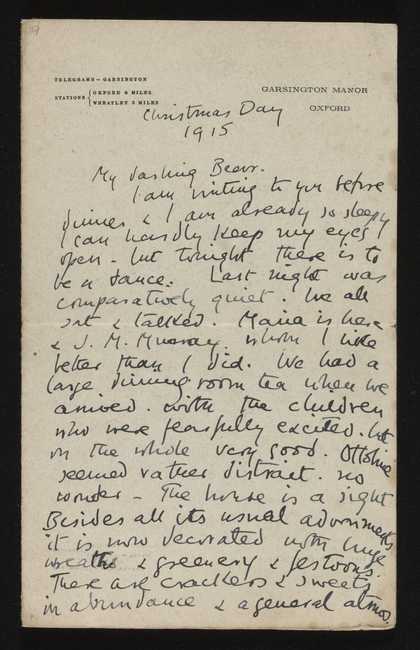 TELEGRAMS—GARSINGTON
STATIONS { OXFORD 6 MILES
WHEATLEY 3 MILES
GARSINGTON MANOR
OXFORD
Christmas Day
1915
My dashing Bear.
I am writing to you before
dinner & I am already so sleepy
I can hardly keep my eyes
open - but tonight there is to
be a dance. Last night was
comparatively quiet. We all
sat & talked. Maria is here
& J. M. Murray whom I like
better than I did. We had a
large dinning room tea when we
arrived. with the children
who were fearfully excited. but
on the whole very good. Ottoline
seemed rather distrait. no
wonder - The house is a sight
Besides all its usual adornments
it is now decorated with huge
wreaths & greenery & festoons.
There are crackers & sweets
in abundance & a general atmos.